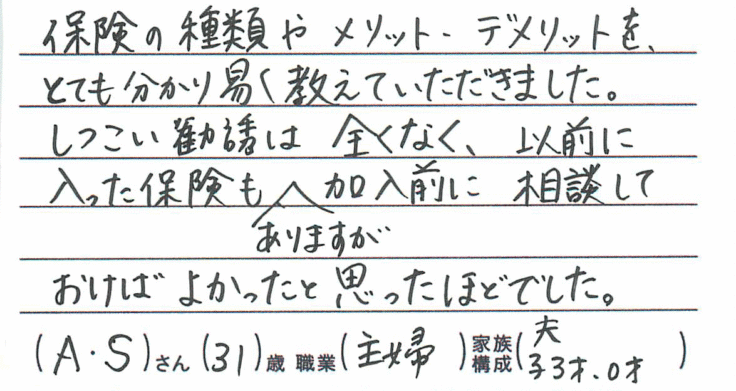 保険の種類やメリット・デメリットを、
とても分かり易く教えていただきました。
しつこい勧誘は全くなく、以前に
入った保険も加入前に相談して
ありますが
おけばよかったと思ったほどでした。
(A・S)さん(31)歳 職業(主婦)家族構成(夫
子3才、0才)